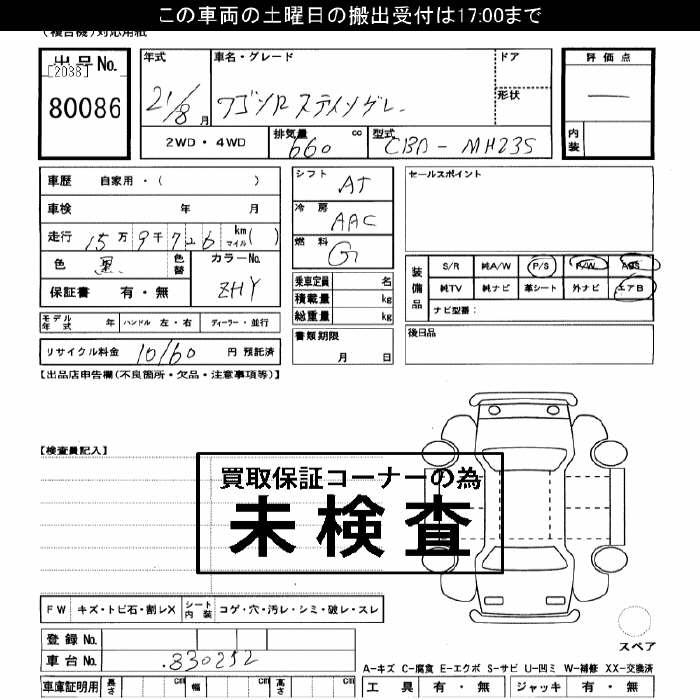 この車両の土曜日の搬出受付は17:00まで
(複合機)対応用紙
出品No.
[2038]
80086
年式
21/8 月
車名・グレード
ワゴンR スティングレー
ドア
形状
評価点
内装
2WD・4WD
排気量
660 cc
型式
CBA-MH23S
車歴 自家用・( )
車検 年 月
走行 15万9千726 km マイル ( )
色 黒 色替
カラーNo.
ZHY
保証書 有・無
シフト
AT
冷房
AAC
燃料
G
乗車定員 名
積載量 kg
総重量 kg
セールスポイント
装備品
S/R 純A/W P/S P/W ABS
純TV 純ナビ 革シート 外ナビ エアB
ナビ型番:
モデル年式 年 ハンドル 左・右 ディーラー・並行
リサイクル料金 10160 円 預託済
書類期限
月 日
後日品
【出品店申告欄(不良箇所・欠品・注意事項等)】
【検査員記入】
買取保証コーナーの為
未検査
FW キズ・トビ石・割レX シート内装 コゲ・穴・汚レ・シミ・破レ・スレ
登録No.
車台No. 830252
スペア
A-キズ C-腐食 E-エクボ S-サビ U-凹ミ W-補修 XX-交換済
車庫証明用 長さ cm 幅 cm 高さ cm
工具 有・無 ジャッキ 有・無